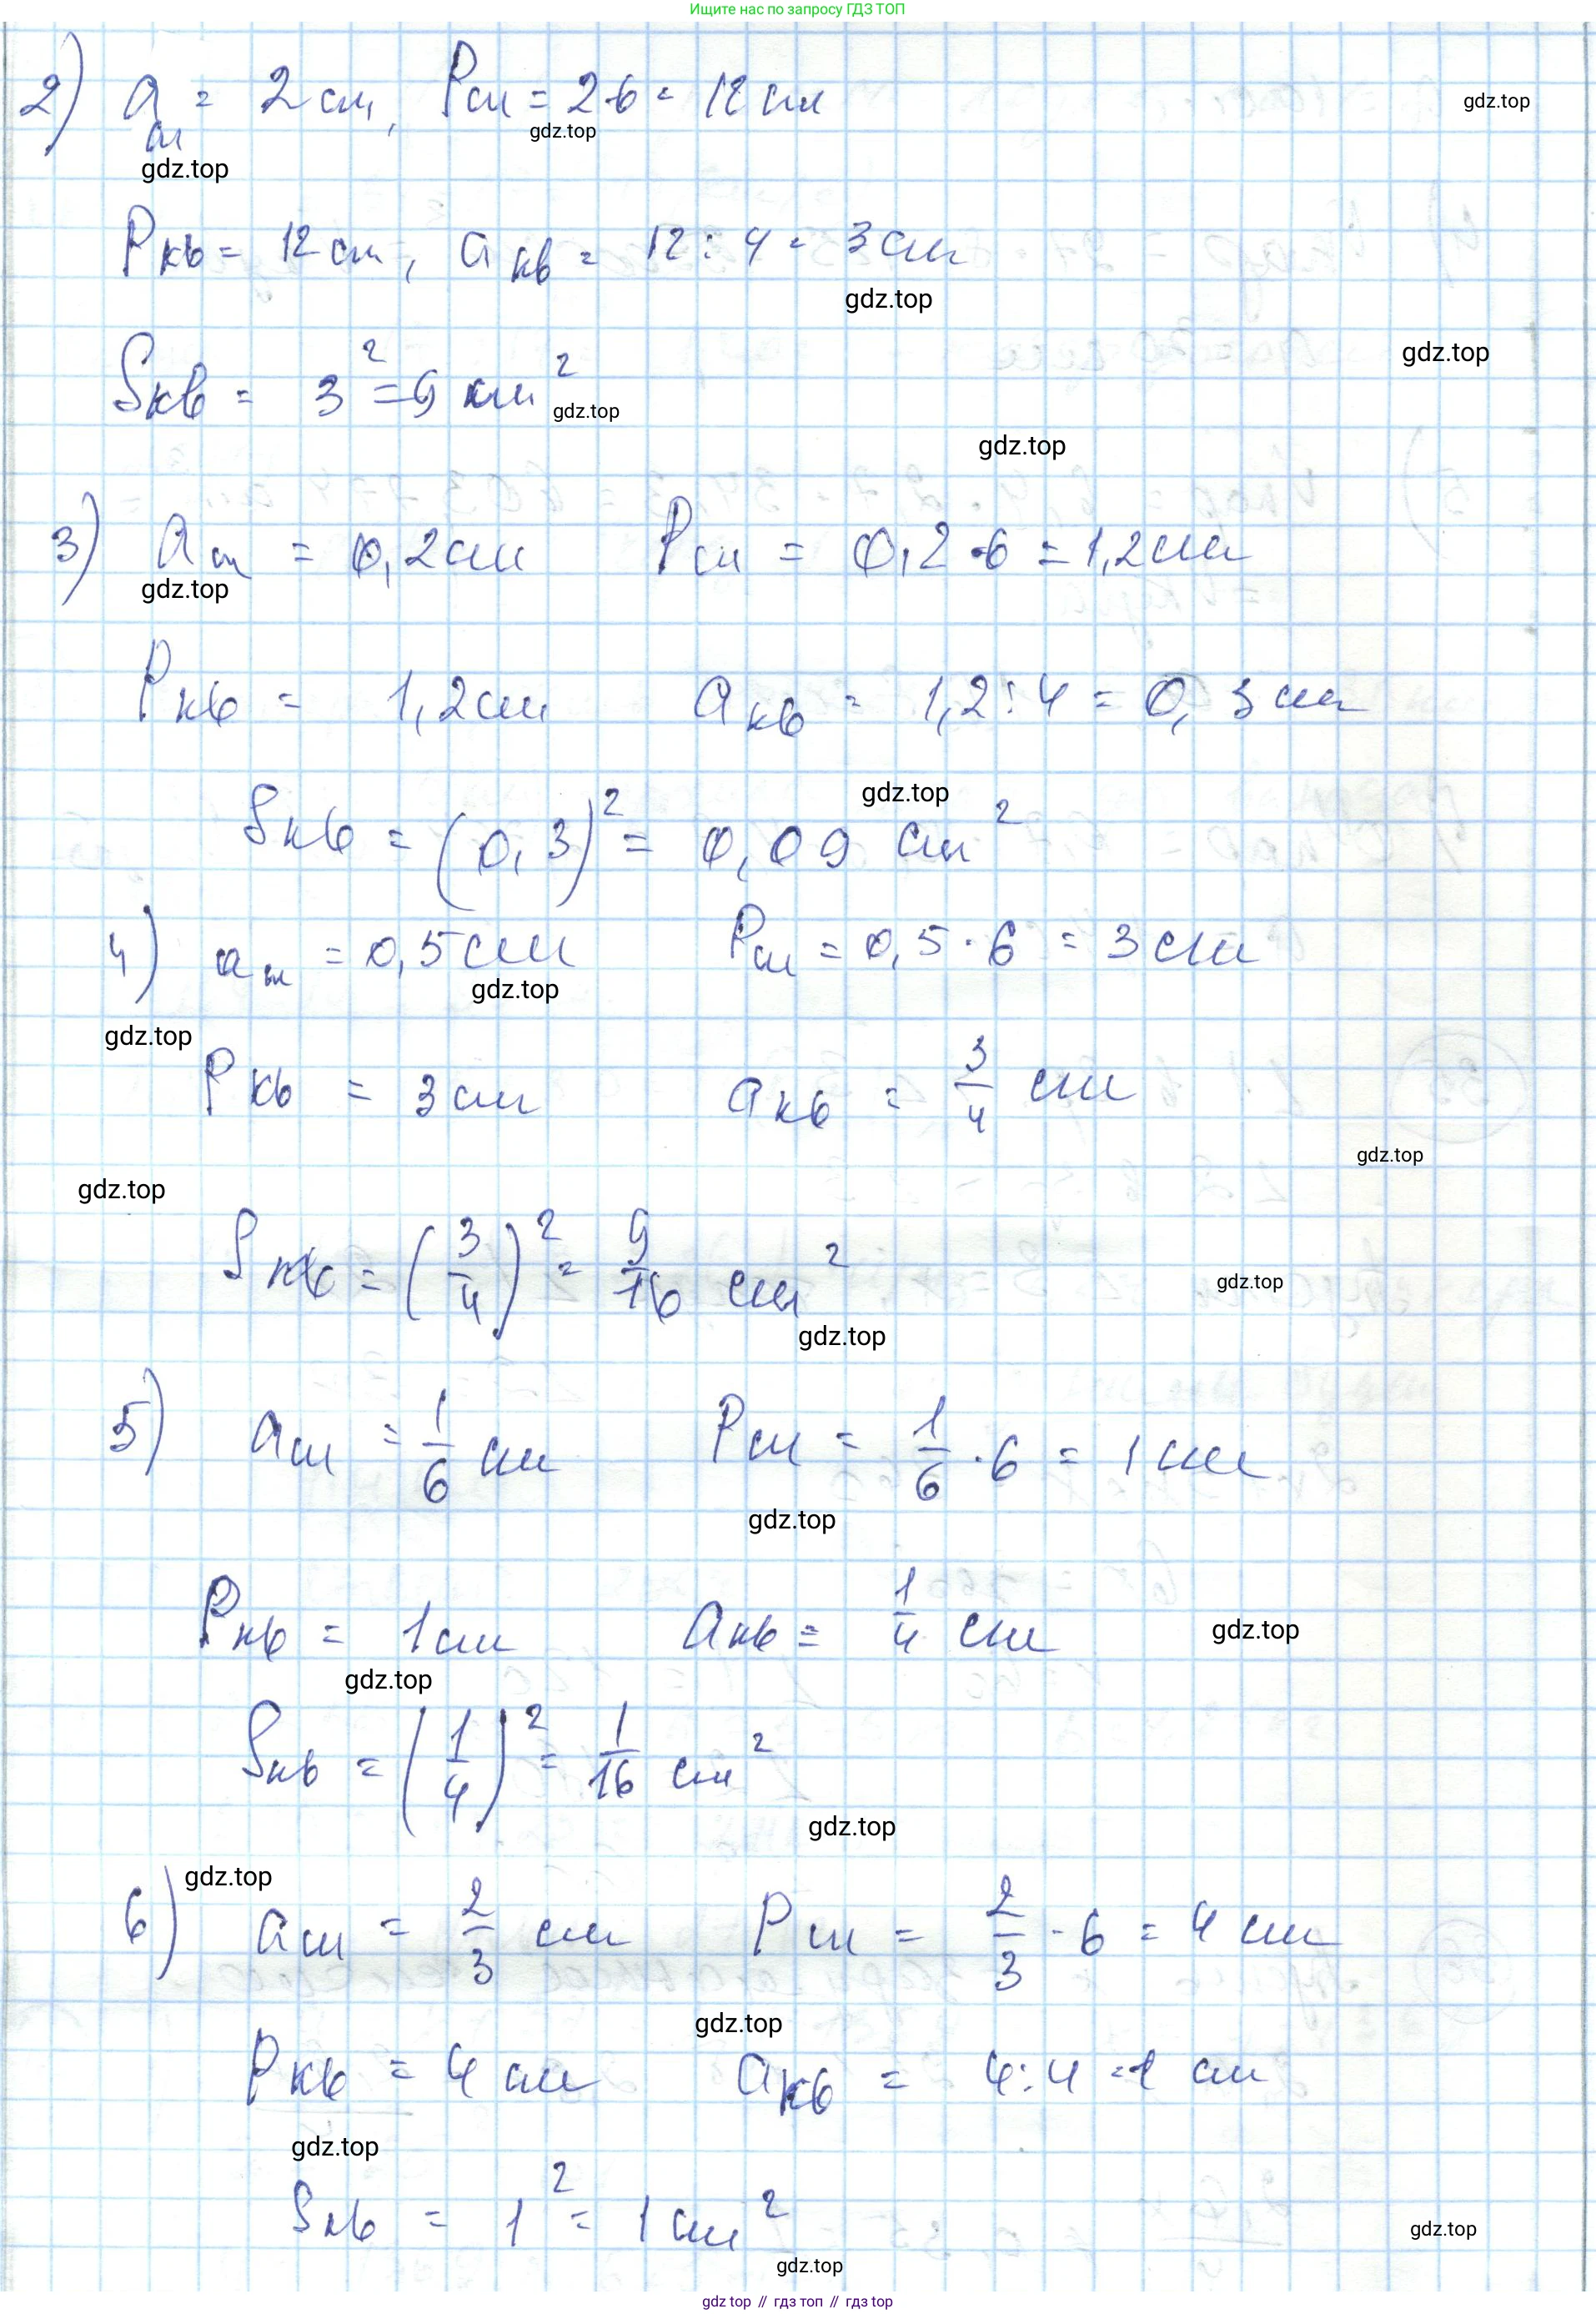 Ищите нас по запросу ГДЗ ТОП
2) a_ш = 2 см, P_ш = 2·6 = 12 см
gdz.top
gdz.top
gdz.top
P_кв = 12 см, a_кв = 12 : 4 = 3 см
gdz.top
S_кв = 3² = 9 см²
gdz.top
gdz.top
gdz.top
3) a_ш = 0,2 см P_ш = 0,2·6 = 1,2 см
gdz.top
P_кв = 1,2 см a_кв = 1,2 : 4 = 0,3 см
gdz.top
S_кв = (0,3)² = 0,09 см²
4) a_ш = 0,5 см P_ш = 0,5·6 = 3 см
gdz.top
gdz.top
P_кв = 3 см a_кв = 3/4 см
gdz.top
gdz.top
S_кв = (3/4)² = 9/16 см²
gdz.top
gdz.top
5) a_ш = 1/6 см P_ш = 1/6·6 = 1 см
gdz.top
P_кв = 1 см a_кв = 1/4 см
gdz.top
gdz.top
S_кв = (1/4)² = 1/16 см²
gdz.top
gdz.top
6) a_ш = 2/3 см P_ш = 2/3·6 = 4 см
gdz.top
P_кв = 4 см a_кв = 4:4 = 1 см
gdz.top
S_кв = 1² = 1 см²
gdz.top
gdz.top
gdz top // гдз топ // гдз top